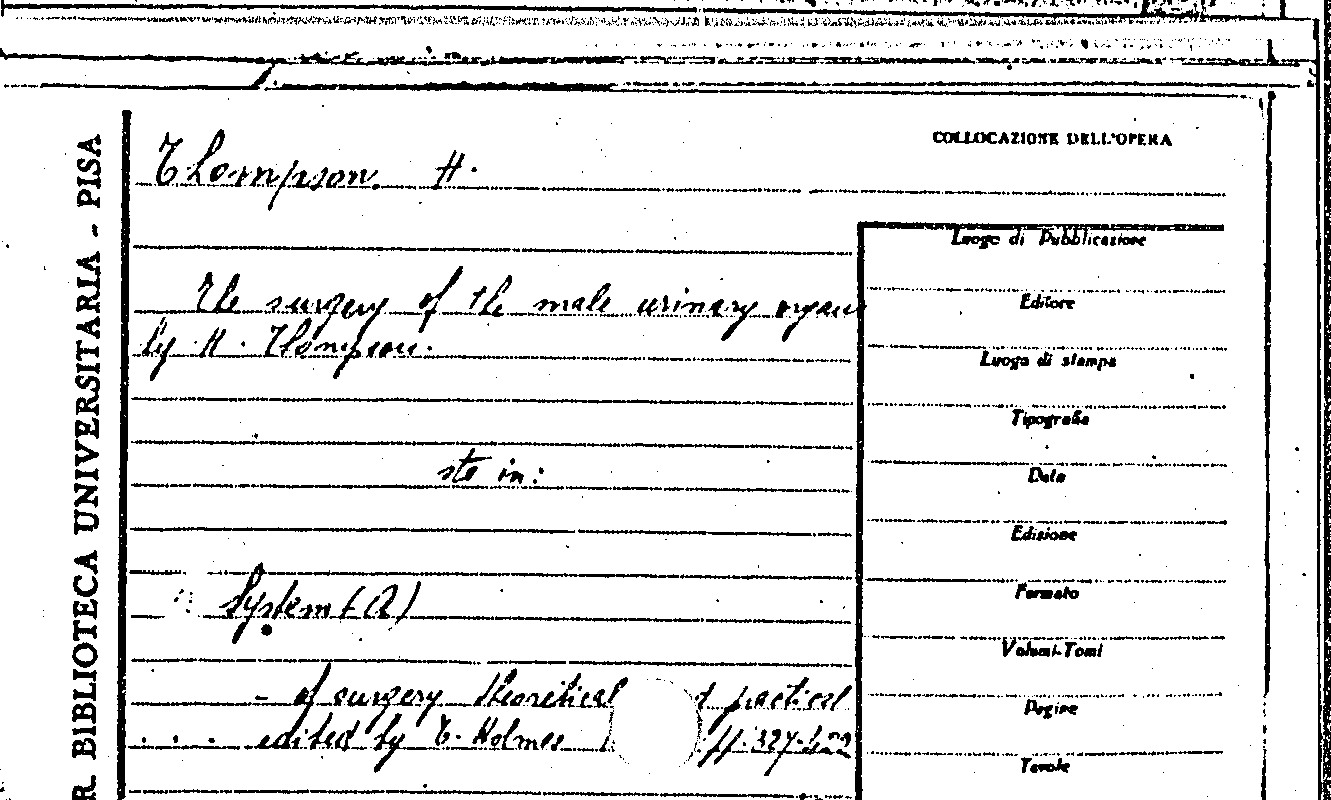 R. BIBLIOTECA UNIVERSITARIA - PISA
COLLOCAZIONE DELL'OPERA
Thompson H.
The surgery of the male urinary organs
by H. Thompson.
sta in:
System (A)
- of surgery theoritical practical
edited by T. Holmes
Luogo di Pubblicazione
Editore
Luogo di stampa
Tipografia
Data
Edizione
Formato
Volumi-Tomi
Pagine
Tavole